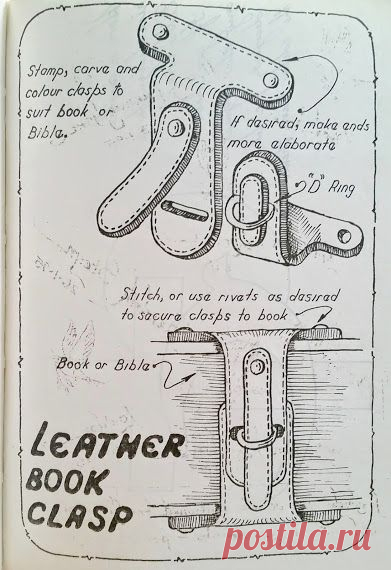 Stamp, carve and
colour clasps to
suit book or
Bible.
If desired, make ends
more elaborate
"D" Ring
Stitch, or use rivets as desired
to secure clasps to book
Book or Bible
LEATHER
BOOK
CLASP
postila.ru